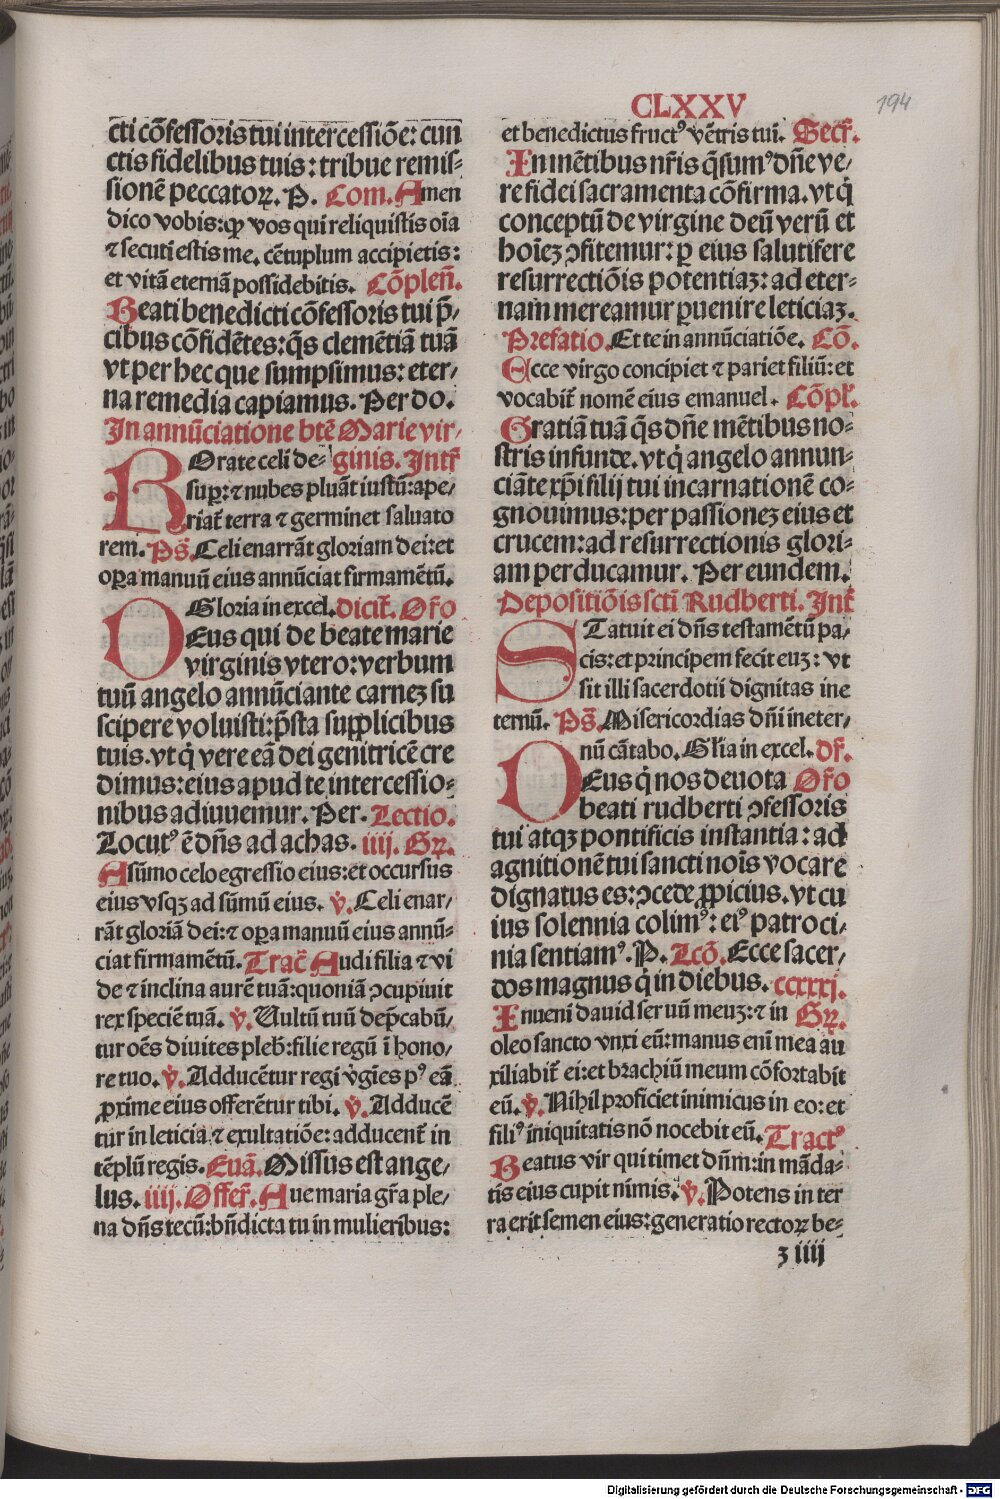 CLXXV
194
cti cõfessoris tui intercessiõe: cun
ctis fidelibus tuis: tribue remis⸗
sionẽ peccatoꝝ. P. Com. Amen
dico vobis: ꝙ vos qui reliquistis oĩa
⁊ secuti estis me. cẽtuplum accipietis:
et vitã eternã possidebitis. Cõpleñ.
Beati benedicti cõfessoris tui p̃/
cibus cõfidẽtes: q̃s clemẽtiã tuã
vt per hec que sumpsimus: eter/
na remedia capiamus. Per do.
In annũciatione btẽ Marie vir/
BOrate celi de⸗ ginis. Intr̃
sup̱: ⁊ nubes pluãt iustũ: ape/
riat̃ terra ⁊ germinet saluato
rem. Ps̃. Celi enarrãt gloriam dei: et
oꝑa manuũ eius annũciat firmamẽtũ.
Gloria in excel. dicit̃. Or̃o
DEus qui de beate marie
virginis vtero: verbum
tuũ angelo annũciante carneꝫ su
scipere voluisti: p̃sta supplicibus
tuis. vt q̇ vere eã dei genitricẽ cre
dimus: eius apud te intercessio⸗
nibus adiuuemur. Per. Lectio.
Locutꝰ ẽ dñs ad achas. iiij. Gꝝ.
A sũmo celo egressio eius: et occursus
eius vsqꝫ ad sũmũ eius. v̇. Celi enar/
rãt gloriã dei: ⁊ oꝑa manuũ eius annũ⸗
ciat firmamẽtũ. Trac̃ Audi filia ⁊ vi
de ⁊ inclina aurẽ tuã: quoniã ↄcupiuit
rex speciẽ tuã. v̇. Uultũ tuũ dep̃cabũ/
tur oẽs diuites pleb̃: filie regũ ĩ hono/
re tuo. v̇. Adducẽtur regi v̓gĩes pꝰ eã
ꝓxime eius offerẽtur tibi. v̇. Adducẽ
tur in leticia ⁊ exultatiõe: adducent̃ in
tẽplũ regis. Euã. Missus est ange/
lus. iiij. Offer̃. Aue maria gr̃a ple/
na dñs tecũ: bñdicta tu in mulieribus:
et benedictus fructꝰ vẽtris tui. Secr̃.
In mẽtibus nr̃is q̃sumꝰ dñe ve/
re fidei sacramenta cõfirma. vt q̇
conceptũ de virgine deũ verũ et
hoĩeꝫ ↄfitemur: ꝑ eius salutifere
resurrectiõis potentiaꝫ: ad eter⸗
nam mereamur ꝑuenire leticiaꝫ.
Prefatio. Et te in annũciatiõe. Cõ.
Ecce virgo concipiet ⁊ pariet filiũ: et
vocabit̃ nomẽ eius emanuel. Cõpl̃.
Gratiã tuã q̃s dñe mẽtibus no⸗
stris infunde. vt q̇ angelo annun⸗
ciãte xp̃i filij tui incarnationẽ co⸗
gnouimus: per passioneꝫ eius et
crucem: ad resurrectionis glori⸗
am perducamur. Per eundem.
Depositiõis scti Rudberti. Int̃
STatuit ei dñs testamẽtũ pa/
cis: et principem fecit euꝫ: vt
sit illi sacerdotii dignitas in e
ternũ. Ps̃. Misericordias dñi in eter/
nũ cãtabo. Gl̃ia in excel. df.
DEus q̇ nos deuota Or̃o
beati rudberti ↄfessoris
tui atqꝫ pontificis instantia: ad
agnitionẽ tui sancti noĩs vocare
dignatus es: ↄcede ꝓpicius. vt cu
ius solennia colimꝰ: eiꝰ patroci/
nia sentiamꝰ. P. Lcõ. Ecce sacer/
dos magnus q̇ in diebus. ccxxxj.
Inueni dauid seruũ meuꝫ: ⁊ in Gꝝ.
oleo sancto vnxi eũ: manus enĩ mea au
xiliabit̃ ei: et brachiũ meum cõfortabit
eũ. v̇. Nihil proficiet inimicus in eo: et
filiꝰ iniquitatis nõ nocebit eũ. Tractꝰ
Beatus vir qui timet dñm: in mãda⸗
tis eius cupit nimis. v̇. Potens in ter
ra erit semen eius: generatio rectoꝝ be⸗
ꝫ iiij
Digitalisierung gefördert durch die Deutsche Forschungsgemeinschaft - DFG